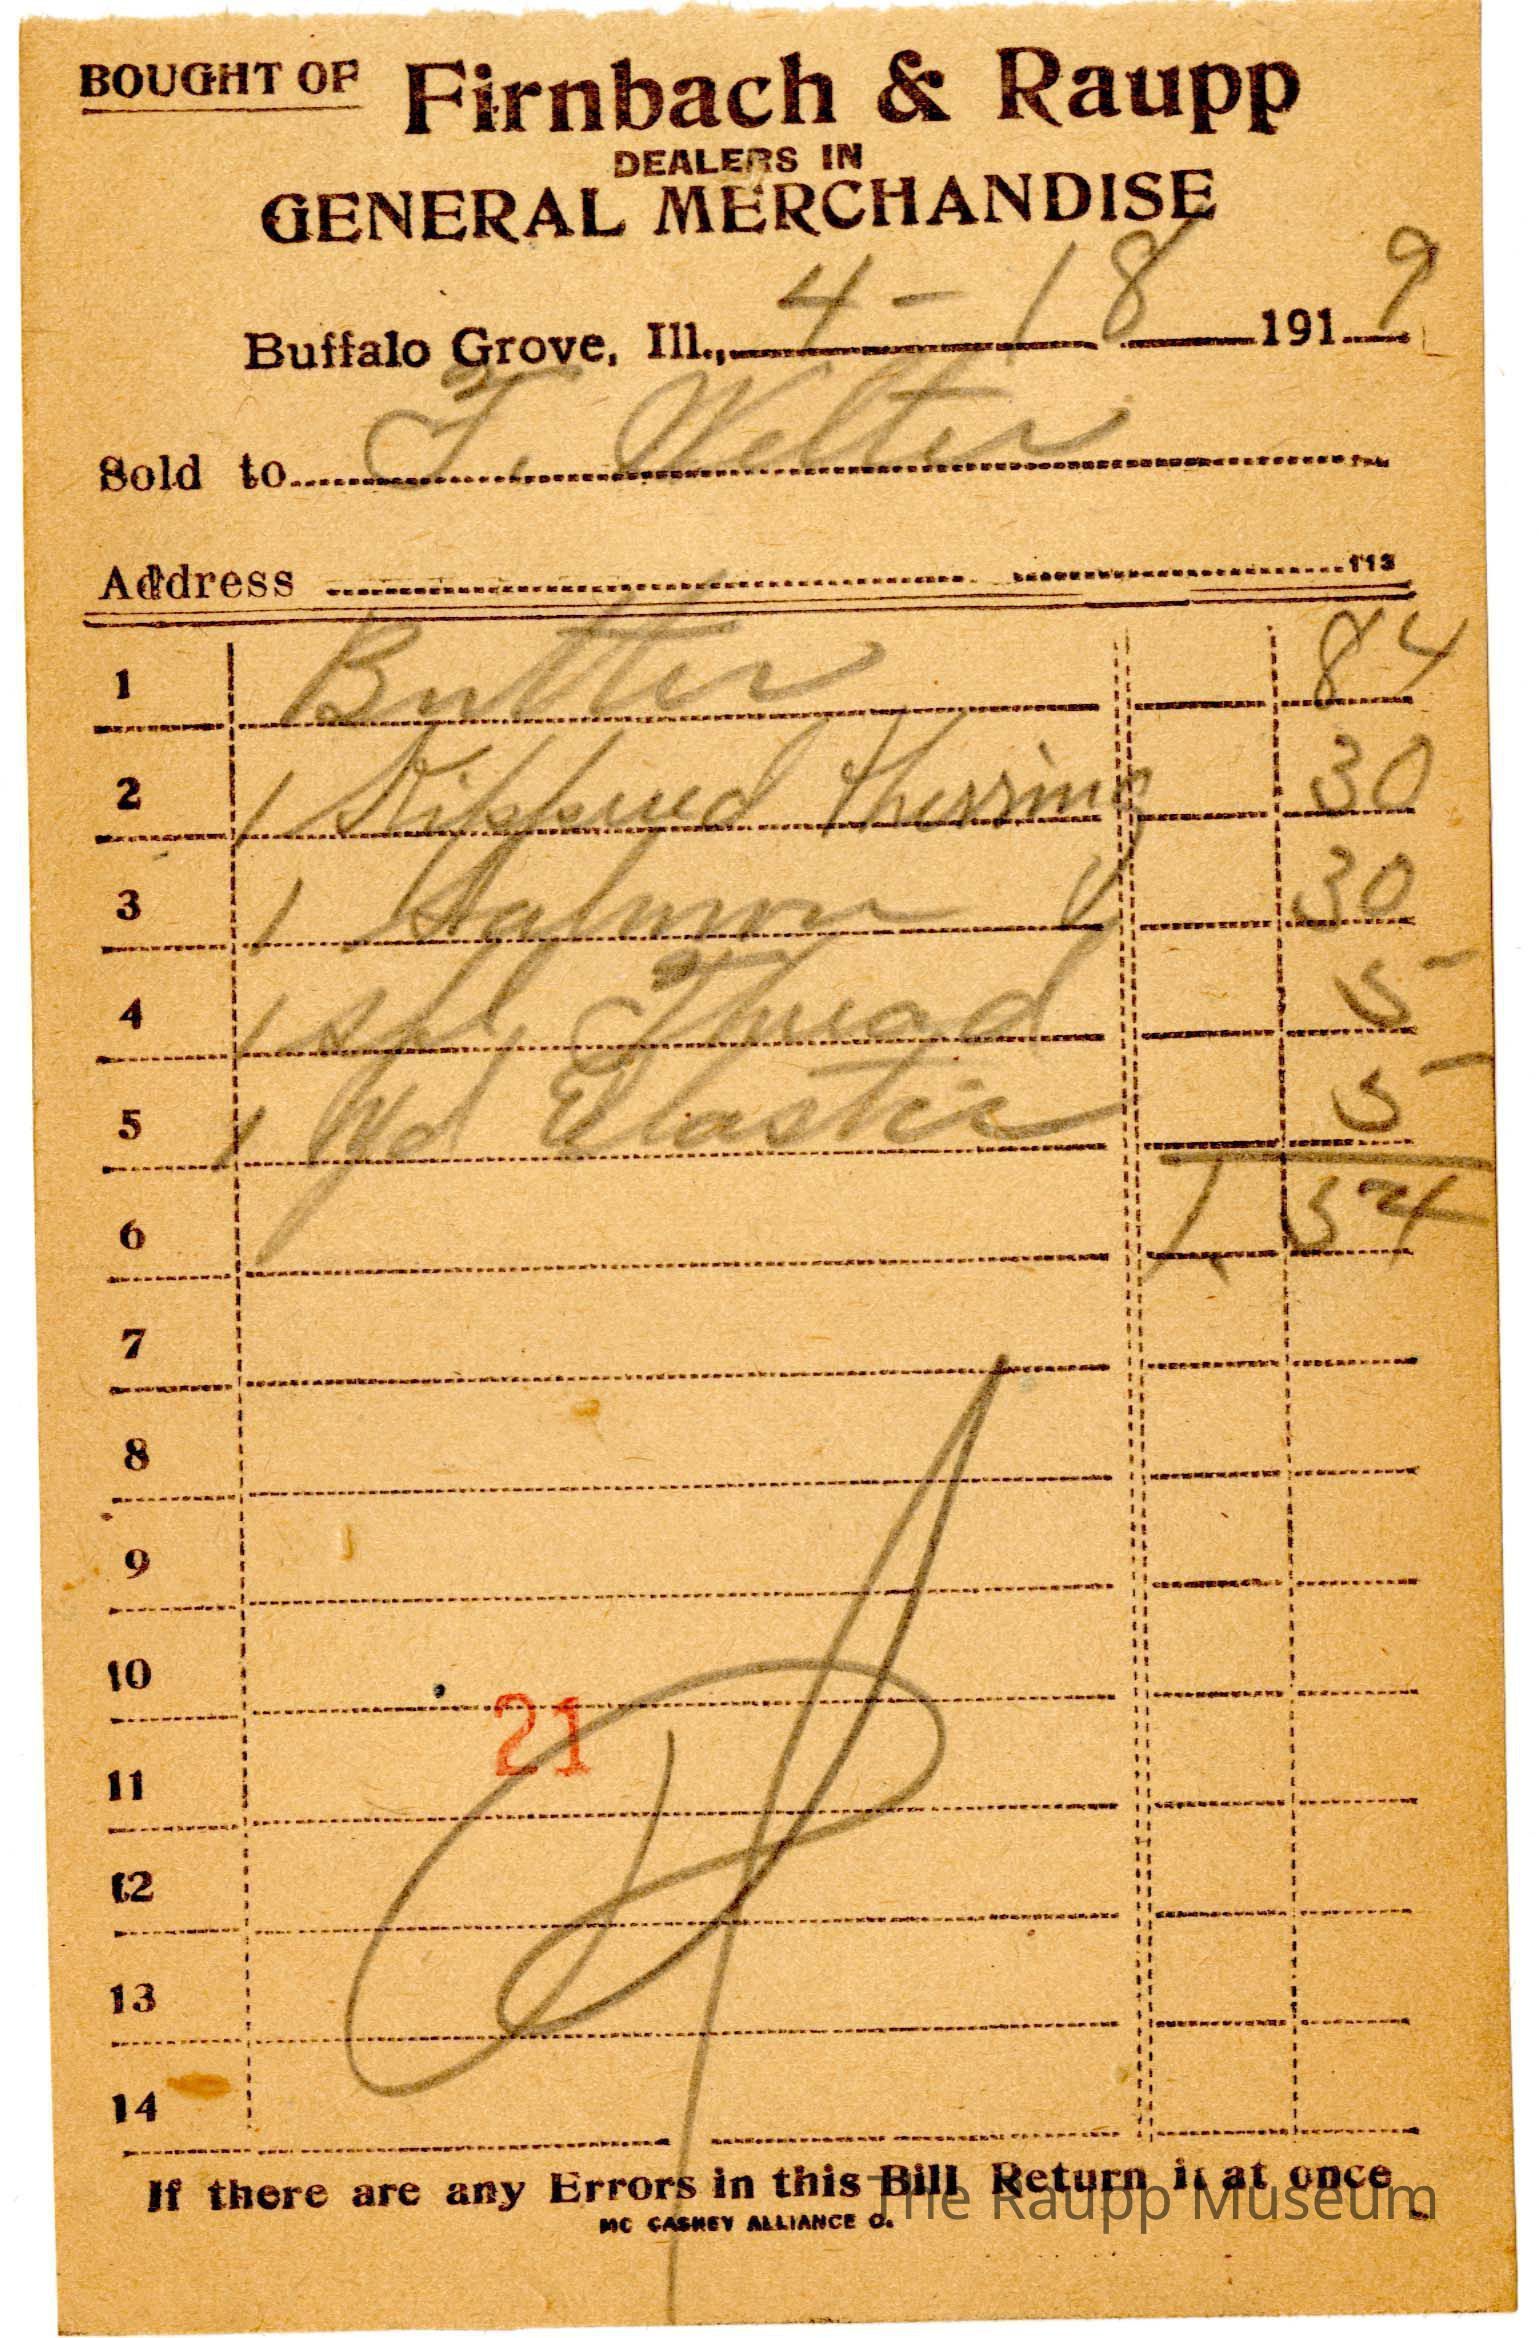 BOUGHT OF Firnbach & Raupp
DEALERS IN
GENERAL MERCHANDISE
Buffalo Grove, Ill., 4 - 18 1919
Sold to F. Welter
Address 113
1 Butter 84
2 1 Kippured Herring 30
3 1 Salmon 30
4 1 Spl Thread 5
5 1 Yd Elastic 5
6 1 54
7
8
9
10
21
11
12
13
14
If there are any Errors in this Bill Return it at once
The Raupp Museum
MC CASKEY ALLIANCE O.